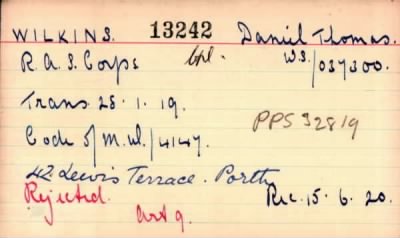 WILKINS. 13242 Daniel Thomas.
R.A.S. Corps Cpl. W.S./037300.
Trans. 28.1.19.
PPS 32819
Code 5/M.W./4147.
42 Lewis Terrace. Porth
Rejected. Rec. 15.6.20.
Art 9.